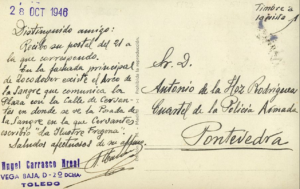 28 OCT 1946
Distinguido amigo:
Recibo su postal del 21 a
la que correspondo.
En la fachada principal
de Zocodover existe el Arco de
la Sangre que comunica la
Plaza con la Calle de Cervan-
tes en donde se ve la Posada de
la Sangre en la que Cervantes
escribió "La Ilustre Fregona".
Saludos afectuosos de su
Angel Carrasco
VEGA BAJA, D-2º DCHA.
TOLEDO
Timbre a
Sr. D.
Antonio de la Hoz Rodríguez
Cuartel de la Policía Armada
Pontevedra